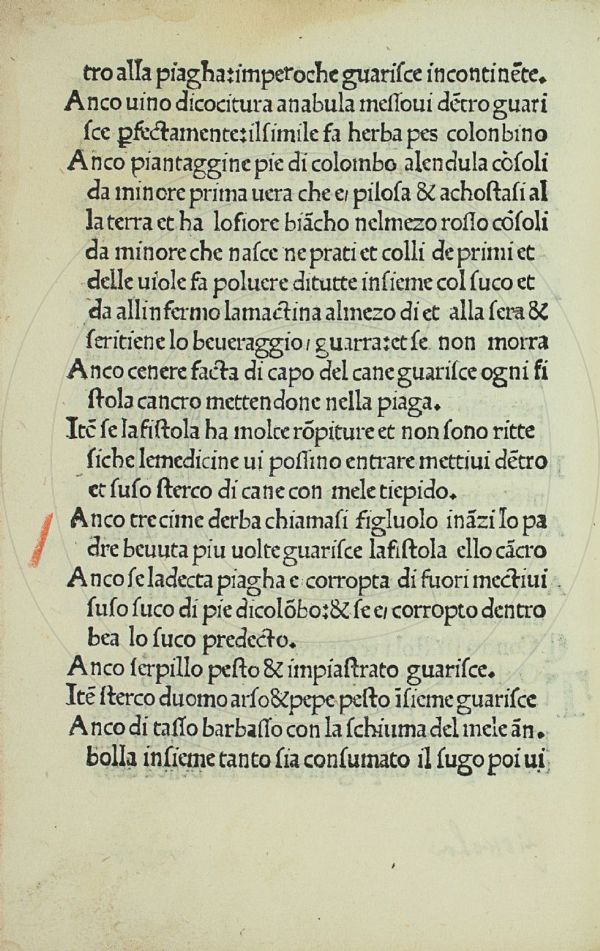 tro alla piagha:imperoche guariſce incontinēte.
Anco uino dicocitura anabula meſſoui dētro guari
ſce ꝑfectamente:ilſimile fa herba pes colonbino
Anco piantaggine pie di colombo alendula cōſoli
da minore prima uera che e, piloſa & achoſtaſi al
la terra et ha loſiore biācho nelmezo roſſo cōſoli
da minore che naſce ne prati et colli de primi et
delle uiole fa poluere ditutte inſieme col ſuco et
da allinfermo lamactina almezo di et alla ſera &
ſeritiene lo beueraggio, guarra:et ſe non morra
Anco cenere facta di capo del cane guariſce ogni fi
ſtola cancro mettendone nella piaga.
Itē ſe lafiſtola ha molte rōpiture et non ſono ritte
ſiche lemedicine ui poſſino entrare mettiui dētro
et ſuſo ſterco di cane con mele tiepido.
Anco tre cime derba chiamaſi figluolo ināzi lo pa
dre beuuta piu uolte guariſce lafiſtola ello cācro
Anco ſe ladecta piagha e corropta di fuori mectiui
ſuſo ſuco di pie dicolōbo:& ſe e, corropto dentro
bea lo ſuco predecto.
Anco ſerpillo peſto & impiaſtrato guariſce.
Itē ſterco duomo arſo&pepe peſto īſieme guariſce
Anco di taſſo barbaſſo con la ſchiuma del mele ān.
bolla inſieme tanto ſia conſumato il ſugo poi ui